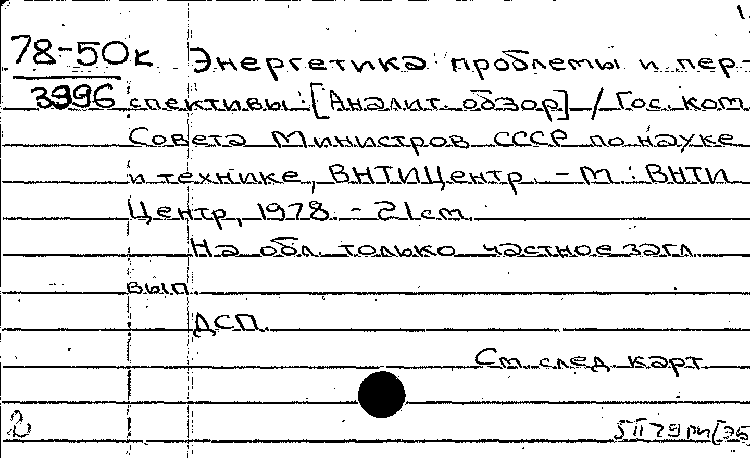 1.
78-50к Энергетика: проблемы и пер-
3996 спективы: [Аналит. обзор] / Гос. ком.
Совета Министров СССР по науке
и технике, ВНТИЦентр. - М.: ВНТИ
Центр, 1978. - 21 см.
На обл. только частное загл.
вып.
ДСП.
См. след. карт.
2
5 II 79